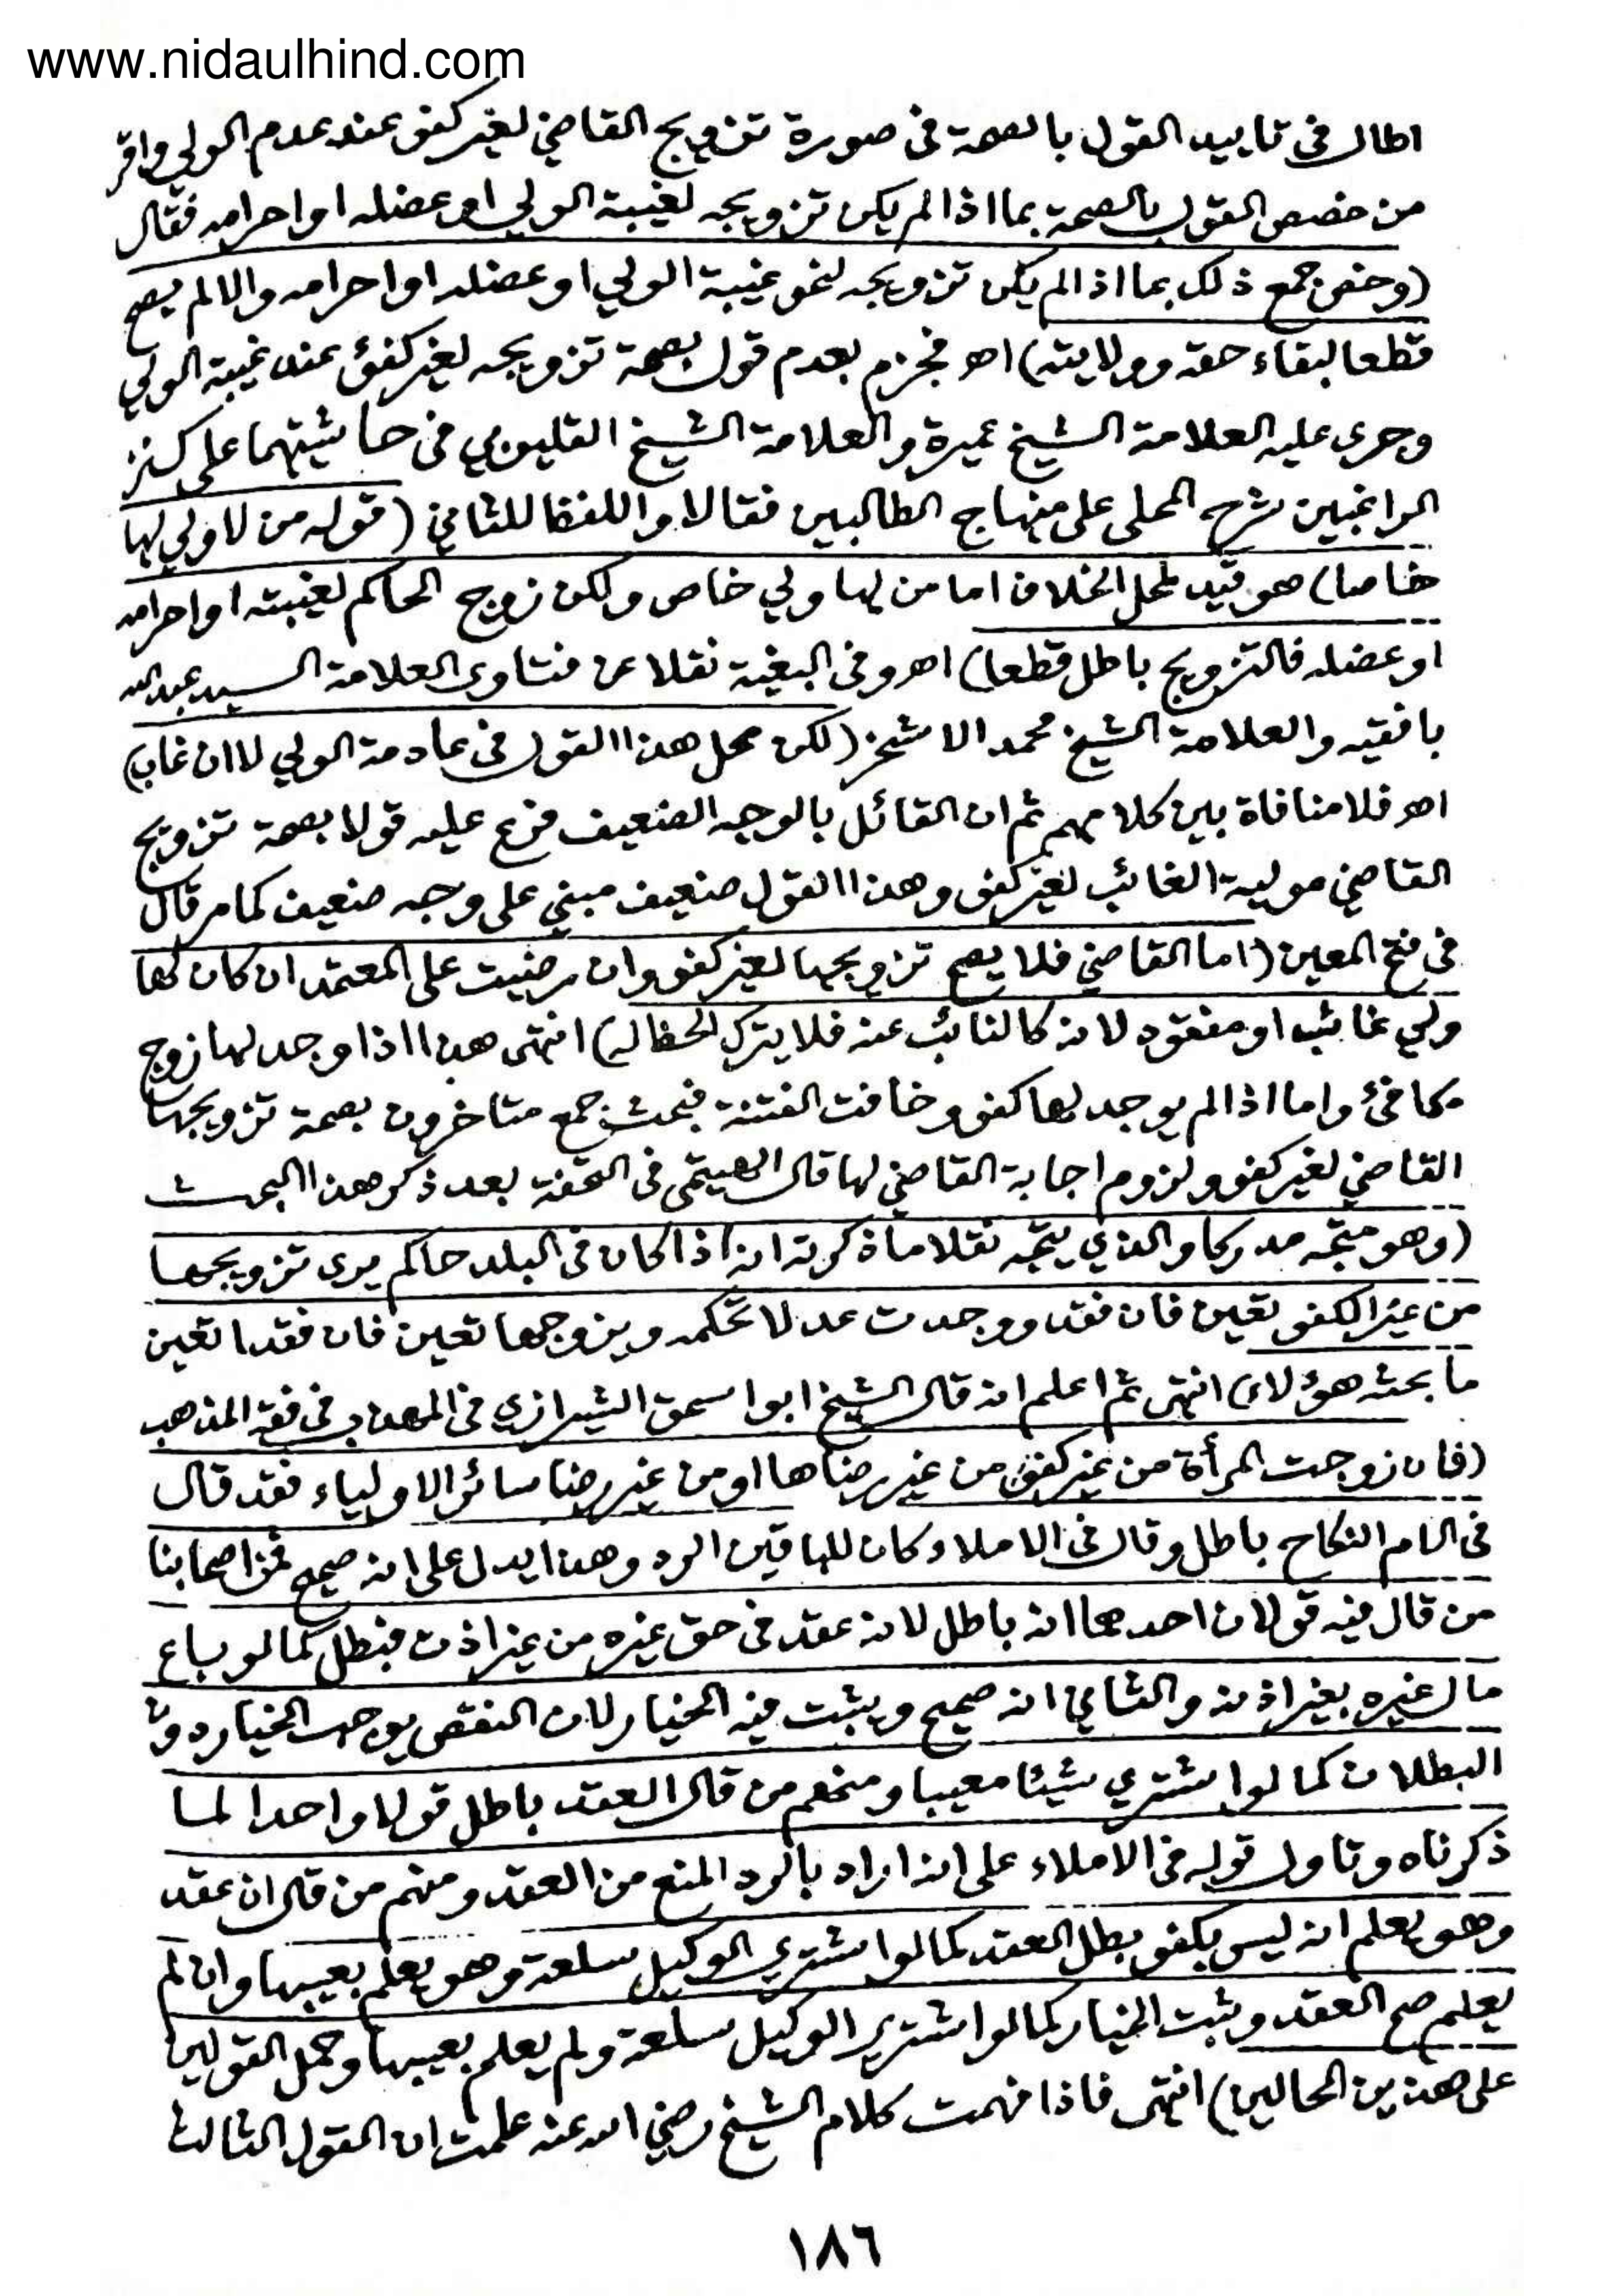 www.nidaulhind.com
اطال فى تاييد القول بالصحة فى صورة تزويج القاضي لغير كفؤ عند عدم الولي واقر
من خصص القول بالصحة بما اذا لم يكن تزويجه لغيبة الولي او عضله او احرامه فقال
(وخص جمع ذلك بما اذا لم يكن تزويجه لنحو غيبة الولي او عضله او احرامه والا لم يصح
قطعا لبقاء حقه وولايته) اهـ فجزم بعدم قول بصحة تزويجه لغير كفئ عند غيبة الولي
وجرى عليه العلامة الشيخ عميرة والعلامة الشيخ القليوبي فى حاشيتهما على كنز
الراغبين شرح المحلى على منهاج الطالبين فقالا واللفظ للثاني (قوله من لا ولي لها
خاصا) هو قيد لمحل الخلاف اما من لها ولي خاص ولكن زوج الحاكم لغيبته او احرامه
او عضله فالتزويج باطل قطعا) اهـ وفى البغية نقلا عن فتاوى العلامة السيد عبد الله
بافقيه والعلامة الشيخ محمد الاشخر (لكن محل هذا القول فى عادمة الولي لا ان غاب)
اهـ فلا منافاة بين كلامهم ثم ان القائل بالوجه الضعيف فرع عليه قولا بصحة تزويج
القاضي مولية الغائب لغير كفؤ وهذا القول ضعيف مبني على وجه ضعيف كما مر قال
فى فتح المعين (اما القاضي فلا يصح تزويجها لغير كفؤ وان رضيت على المعتمد ان كان لها
ولي غائب او مفقود لانه كالنائب عنه فلا يترك الحظ له) انتهى هذا اذا وجد لها زوج
مكافئ واما اذا لم يوجد لها كفؤ وخافت الفتنة فبحث جمع متاخرون بصحة تزويجها
القاضي لغير كفؤ ولزوم اجابة القاضي لها قال الهيتمى فى التحفة بعد ذكر هذا البحث
(وهو متجه مدركا والذي يتجه نقلا ما ذكرته انه اذا كان فى البلد حاكم يرى تزويجها
من غير الكفؤ تعين فان فقد ووجدت عدلا تحكمه ويزوجها تعين فان فقدا تعين
ما بحثه هؤلاء) انتهى ثم اعلم انه قال الشيخ ابوا سحق الشيرازى فى المهذب فى فقه المذهب
(فان زوجت المرأة من غير كفؤ من غير رضاها او من غير رضا سائر الاولياء فقد قال
فى الام النكاح باطل وقال فى الاملاء كان للباقين الرد وهذا يدل على انه صحيح فمن اصحابنا
من قال فيه قولان احدهما انه باطل لانه عقد فى حق غيره من غير اذن فبطل كما لو باع
مال غيره بغير اذنه والثاني انه صحيح ويثبت فيه الخيار لان النقص يوجب الخيار دون
البطلان كما لو اشترى شيئا معيبا ومنهم من قال العقد باطل قولا واحدا لما
ذكرناه وتاول قوله فى الاملاء على انه اراد بالرد المنع من العقد ومنهم من قال ان عقد
وهو يعلم انه ليس بكفؤ بطل العقد كما لو اشترى الوكيل سلعة وهو يعلم بعيبها وان لم
يعلم صح العقد وثبت الخيار كما لو اشترى الوكيل سلعة ولم يعلم بعيبها وحمل القولين
على هذين الحالين) انتهى فاذا فهمت كلام الشيخ رضي الله عنه علمت ان القول الثالث
١٨٦